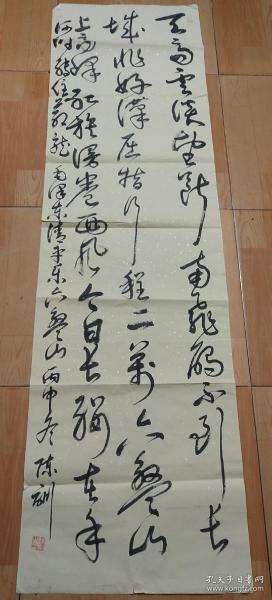 天高云淡望断南飞雁不到长
城非好汉屈指行程二万六盘山
上高峰红旗漫卷西风今日长缨在手
何时缚住苍龙 毛泽东清平乐六盘山 丙申冬 陈
孔夫子旧书网